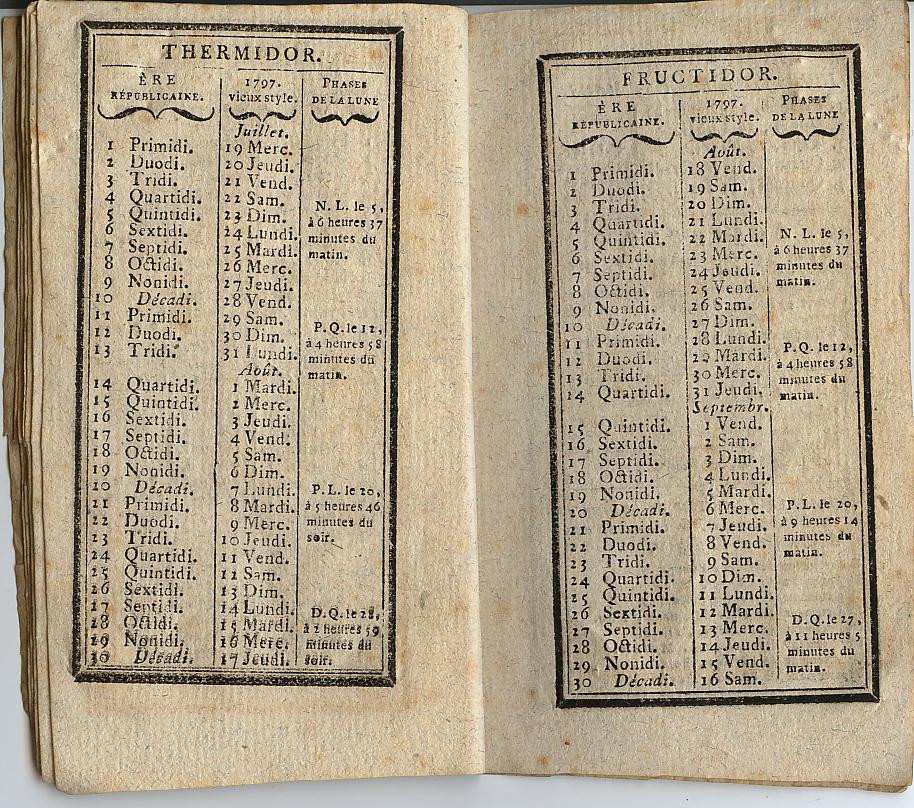 THERMIDOR.
ÈRE
RÉPUBLICAINE.
1797.
vieux style.
PHASES
DE LA LUNE
Juillet.
1 Primidi. 19 Merc.
2 Duodi. 20 Jeudi.
3 Tridi. 21 Vend.
4 Quartidi. 22 Sam.
5 Quintidi. 23 Dim.
6 Sextidi. 24 Lundi.
7 Septidi. 25 Mardi.
8 Octidi. 26 Merc.
9 Nonidi. 27 Jeudi.
10 Décadi. 28 Vend.
11 Primidi. 29 Sam.
12 Duodi. 30 Dim.
13 Tridi. 31 Lundi.
Août.
14 Quartidi. 1 Mardi.
15 Quintidi. 2 Merc.
16 Sextidi. 3 Jeudi.
17 Septidi. 4 Vend.
18 Octidi. 5 Sam.
19 Nonidi. 6 Dim.
20 Décadi. 7 Lundi.
21 Primidi. 8 Mardi.
22 Duodi. 9 Merc.
23 Tridi. 10 Jeudi.
24 Quartidi. 11 Vend.
25 Quintidi. 12 Sam.
26 Sextidi. 13 Dim.
27 Septidi. 14 Lundi.
28 Octidi. 15 Mardi.
29 Nonidi. 16 Merc.
30 Décadi. 17 Jeudi.
N. L. le 5,
à 6 heures 37
minutes du
matin.
P.Q. le 12,
à 4 heures 58
minutes du
matin.
P.L. le 20,
à 5 heures 46
minutes du
soir.
D.Q. le 28,
à 2 heures 59
minutes du
soir.
FRUCTIDOR.
ÈRE
RÉPUBLICAINE.
1797.
vieux style.
PHASES
DE LA LUNE
Août.
1 Primidi. 18 Vend.
2 Duodi. 19 Sam.
3 Tridi. 20 Dim.
4 Quartidi. 21 Lundi.
5 Quintidi. 22 Mardi.
6 Sextidi. 23 Merc.
7 Septidi. 24 Jeudi.
8 Octidi. 25 Vend.
9 Nonidi. 26 Sam.
10 Décadi. 27 Dim.
11 Primidi. 28 Lundi.
12 Duodi. 29 Mardi.
13 Tridi. 30 Merc.
14 Quartidi. 31 Jeudi.
Septembr.
15 Quintidi. 1 Vend.
16 Sextidi. 2 Sam.
17 Septidi. 3 Dim.
18 Octidi. 4 Lundi.
19 Nonidi. 5 Mardi.
20 Décadi. 6 Merc.
21 Primidi. 7 Jeudi.
22 Duodi. 8 Vend.
23 Tridi. 9 Sam.
24 Quartidi. 10 Dim.
25 Quintidi. 11 Lundi.
26 Sextidi. 12 Mardi.
27 Septidi. 13 Merc.
28 Octidi. 14 Jeudi.
29 Nonidi. 15 Vend.
30 Décadi. 16 Sam.
N. L. le 5,
à 6 heures 37
minutes du
matin.
P.Q. le 12,
à 4 heures 58
minutes du
matin.
P.L. le 20,
à 9 heures 14
minutes du
matin.
D.Q. le 27,
à 11 heures 5
minutes du
matin.